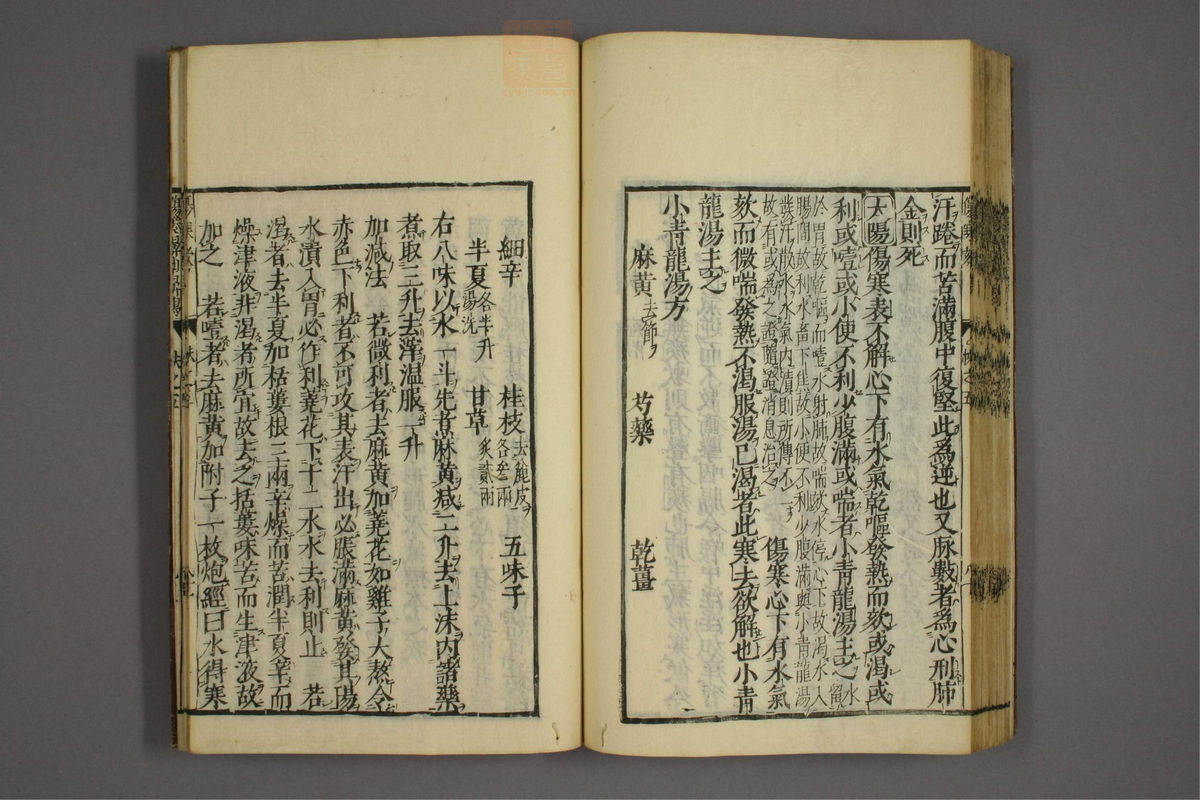 汗踡而苦滿腹中復堅此爲逆也又脉數者爲心刑肺
金則死
太陽傷寒表不解心下有水氣乾嘔發熱而欬或渴或
利或噎或小便不利少腹滿或喘者小青龍湯主之 水留
於胃故乾嘔而噎水射肺故喘欬水停心下故渴水入
腸間故利水畜下焦故小便不利少腹滿與小青龍湯
發汗散水水氣内漬則所傳不一
故有或爲之證隨證消息治之
傷寒心下有水氣
欬而微喘發熱不渴服湯已渴者此寒去欲解也小青
龍湯主之
小青龍湯方
麻黄去節 芍藥 乾薑
細辛 桂枝去麄皮各叁兩 五味子
半夏各半升湯洗 甘草炙貳兩
右八味以水一斗先煮麻黄減二升去上沫内諸藥
煮取三升去滓温服一升
加減法 若微利者去麻黄加蕘花如雞子大熬令
赤色下利者不可攻其表汗出必脹滿麻黄發其陽
水漬入胃必作利蕘花下十二水水去利則止 若
渴者去半夏加栝蔞根三兩辛燥而苦潤半夏辛而
燥津液非渴者所宜故去之括蔞味苦而生津液故
加之 若噎者去麻黄加附子一枚炮經曰水得寒